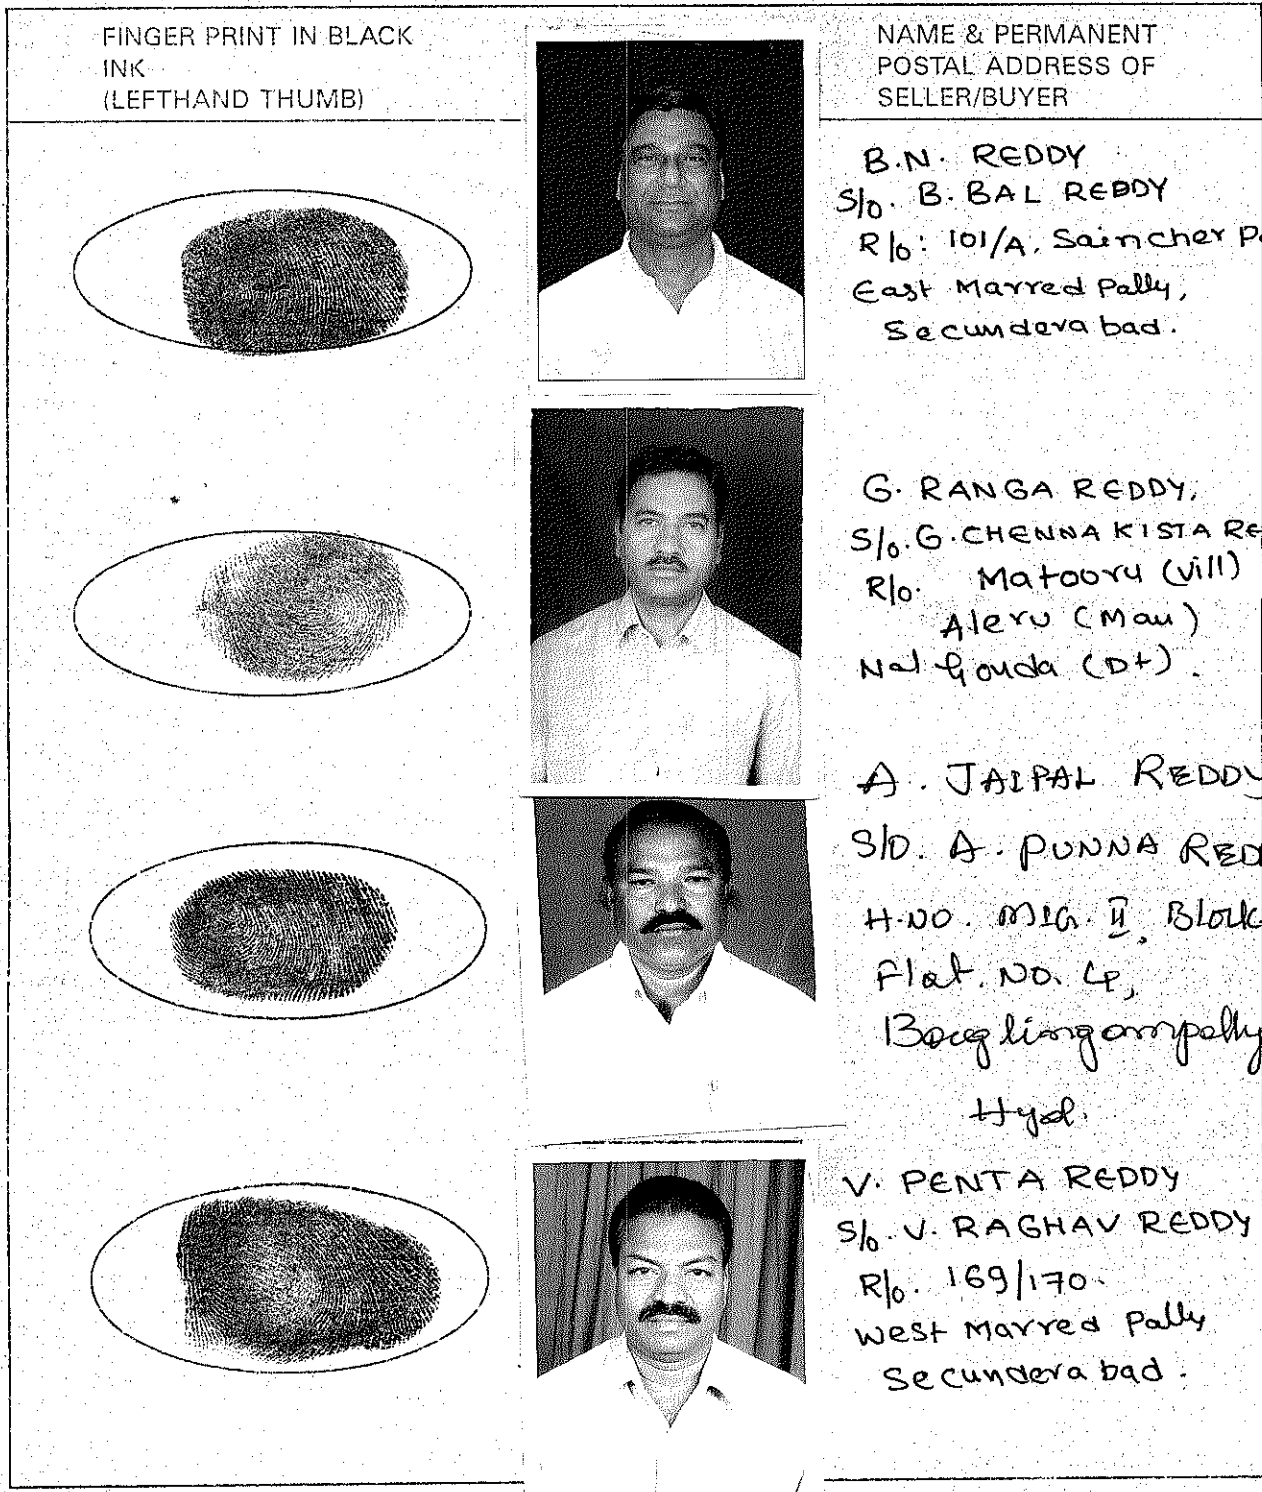 FINGER PRINT IN BLACK
INK
(LEFTHAND THUMB)
NAME & PERMANENT
POSTAL ADDRESS OF
SELLER/BUYER
B.N. REDDY
S/o. B. BAL REDDY
R/o: 101/A, Saincher
East Marred Pally,
Secunderabad.
G. RANGA REDDY,
S/o. G. CHENNA KISTA
R/o. Matooru (Vill)
Aleru (Man)
Nal Gonda (Dt).
A. JAIPAL REDDY
S/O. A. PUNNA
H.NO. MIG. II, Block
Flat. No. 4,
Baglingampally
Hyd.
V. PENTA REDDY
S/o. V. RAGHAV REDDY
R/o. 169/170.
West Marred Pally
Secunderabad.